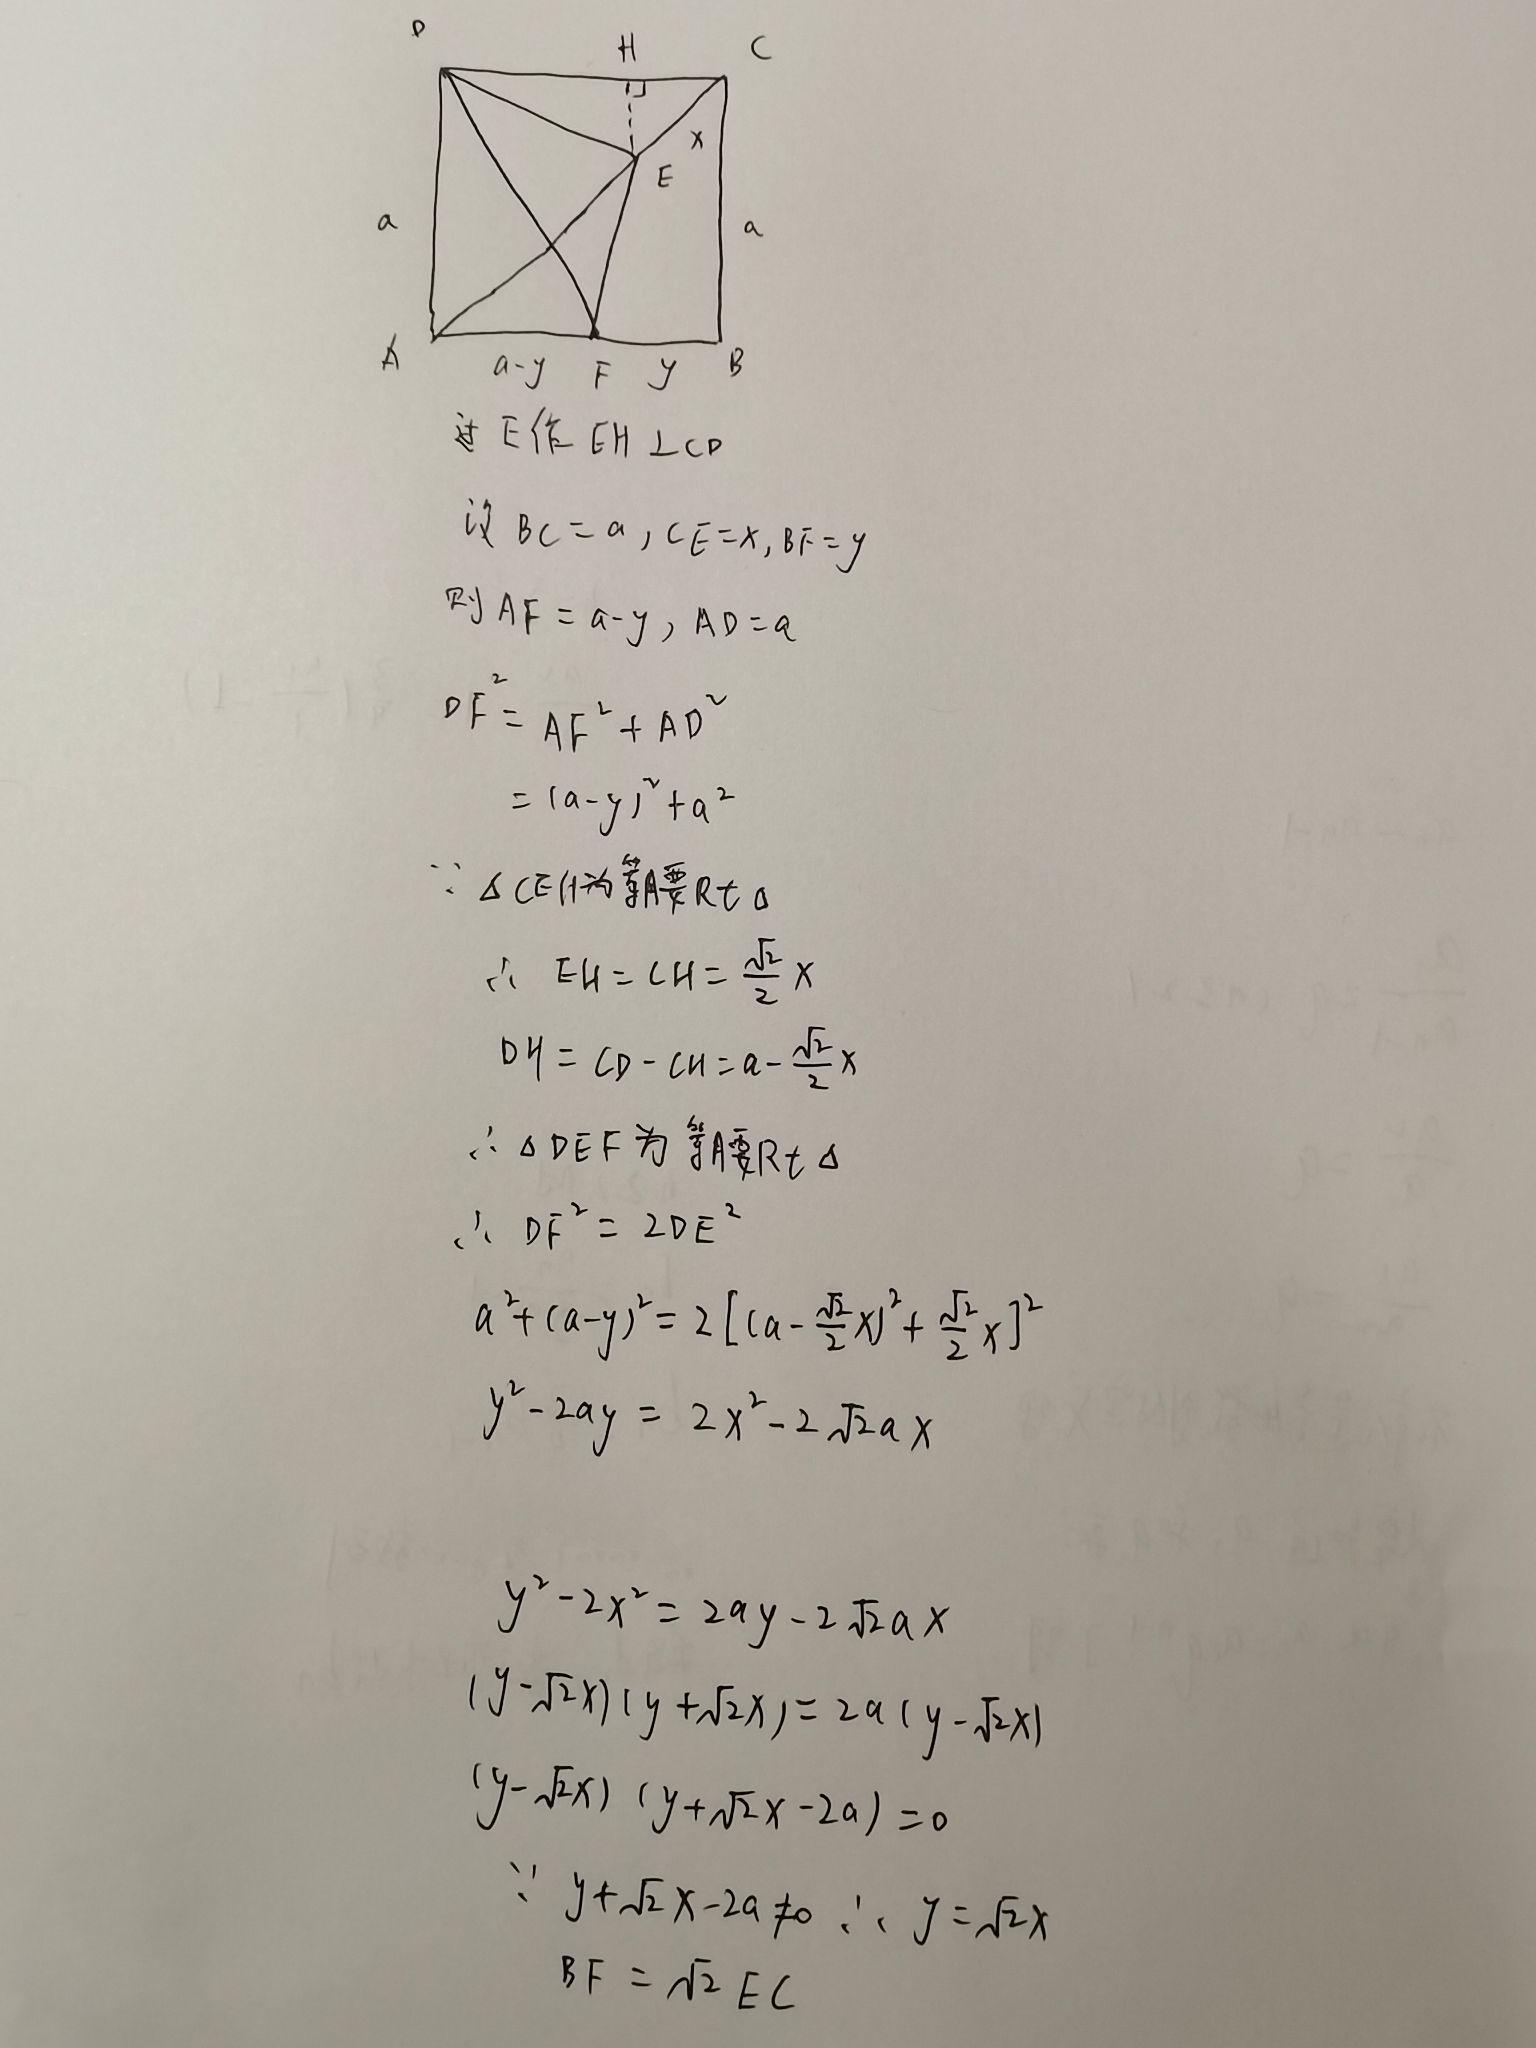 D H C
x
E
a a
A a-y F y B
过E作EH⊥CD
设BC=a,CE=x,BF=y
则AF=a-y,AD=a
DF²=AF²+AD²
=(a-y)²+a²
∵△CEH为等腰Rt△
∴ EH=CH=√2/2 x
DH=CD-CH=a-√2/2 x
∴△DEF为等腰Rt△
∴ DF²=2DE²
a²+(a-y)²=2[(a-√2/2 x)²+√2/2 x]²
y²-2ay=2x²-2√2ax
y²-2x²=2ay-2√2ax
(y-√2x)(y+√2x)=2a(y-√2x)
(y-√2x)(y+√2x-2a)=0
∵ y+√2x-2a≠0 ∴ y=√2x
BF=√2EC